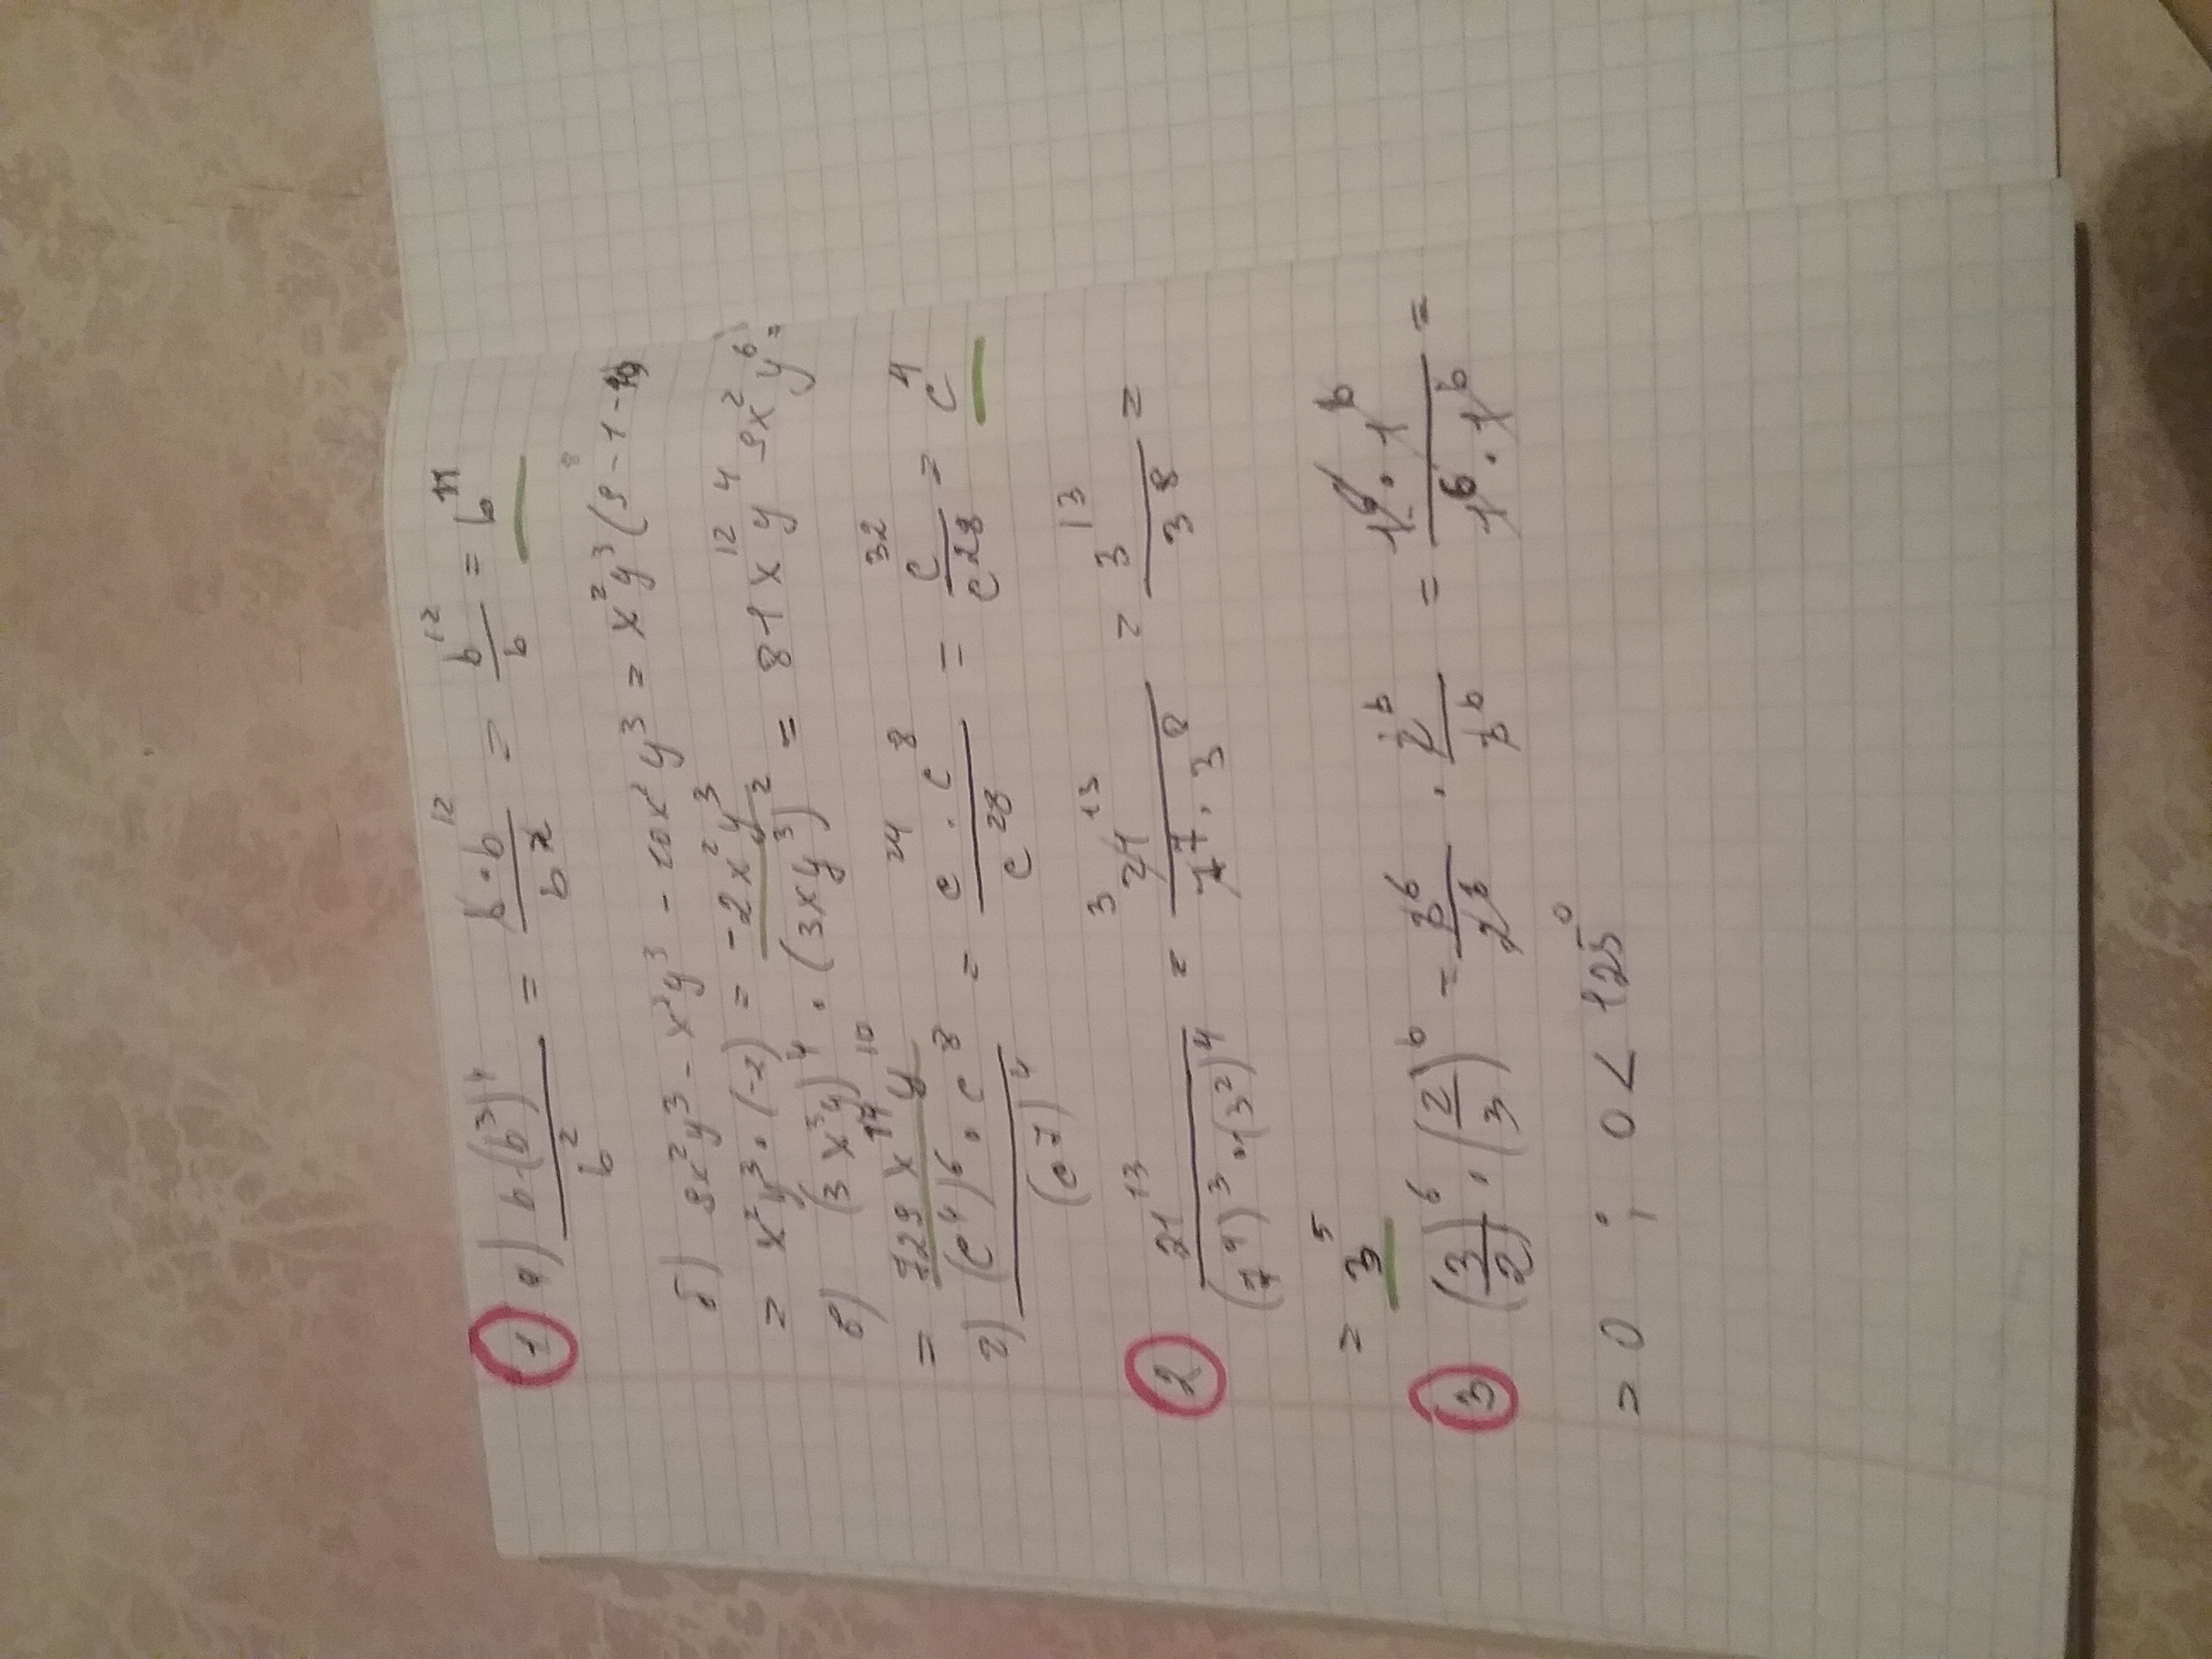 ① а) b·(b³)⁴/b² = b·b¹²/b² = b¹²/b = b¹¹
б) 9x²y³ - x²y³ - 10x²y³ = x²y³(9-1-10
= x²y³·(-2) = -2x²y³
в) (3x³y)⁴·(3xy³)² = 81x¹²y⁴ 9x²y⁶ =
= 729x¹⁴y¹⁰
г) (c⁴)⁶·c⁸/(c⁷)⁴ = c²⁴·c⁸/c²⁸ = c³²/c²⁸ = c⁴
② 21¹³/(7⁴)³·(3²)⁴ = 3 21¹³/7⁷·3⁸ = 3¹³/3⁸ =
= 3⁵
③ (3/2)⁶·(2/3)⁶ = 3⁶/2⁶·2⁶/3⁶ = 1⁶·1⁶/1⁶·1⁶ =
= 0 ; 0 < 125⁰